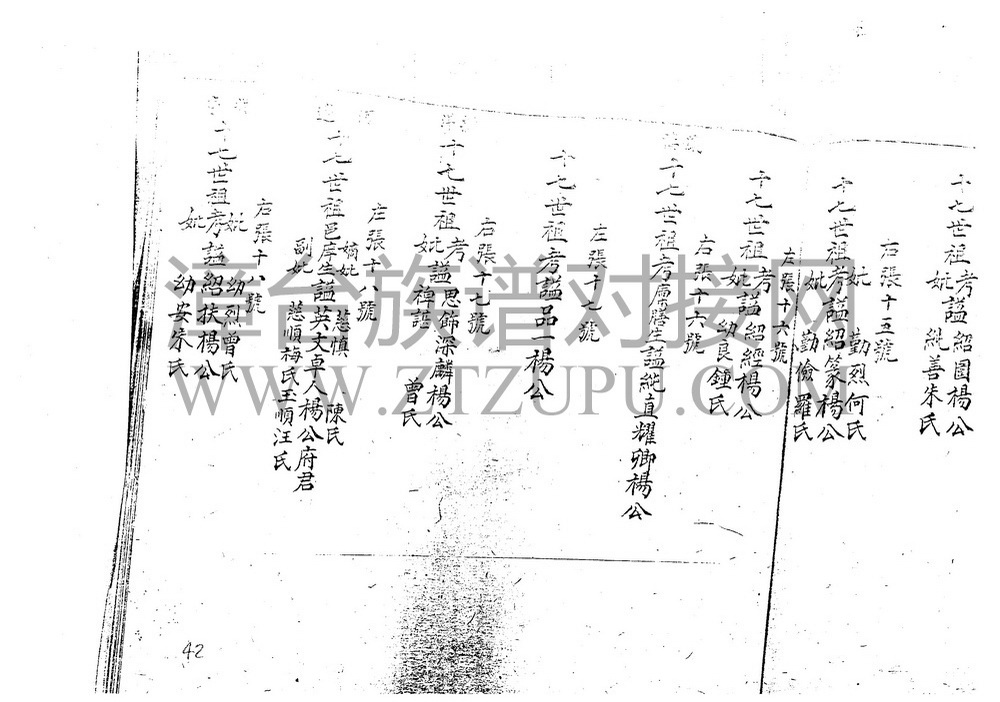 十七世祖考謚紹園楊公
妣純善朱氏
右張十五號
妣勤烈何氏
十七世祖考謚紹篆楊公
妣勤儉羅氏
左張十六號
十七世祖考謚紹經楊公
妣幼良鍾氏
右張十六號
十七世祖考廩膳生謚純直耀卿楊公
左張十七號
十七世祖考謚品一楊公
右張十七號
十七世祖考謚思飾深麟楊公
妣禅語曾氏
左張十八號
嫡妣慈慎陳氏
十七世祖邑庠生謚英文卓人楊公府君
副妣慈順梅氏玉順汪氏
右張十八號
妣幼烈曾氏
十七世祖考謚紹扶楊公
妣幼安朱氏
漳台族谱对接网
WWW.ZTZUPU.COM
42